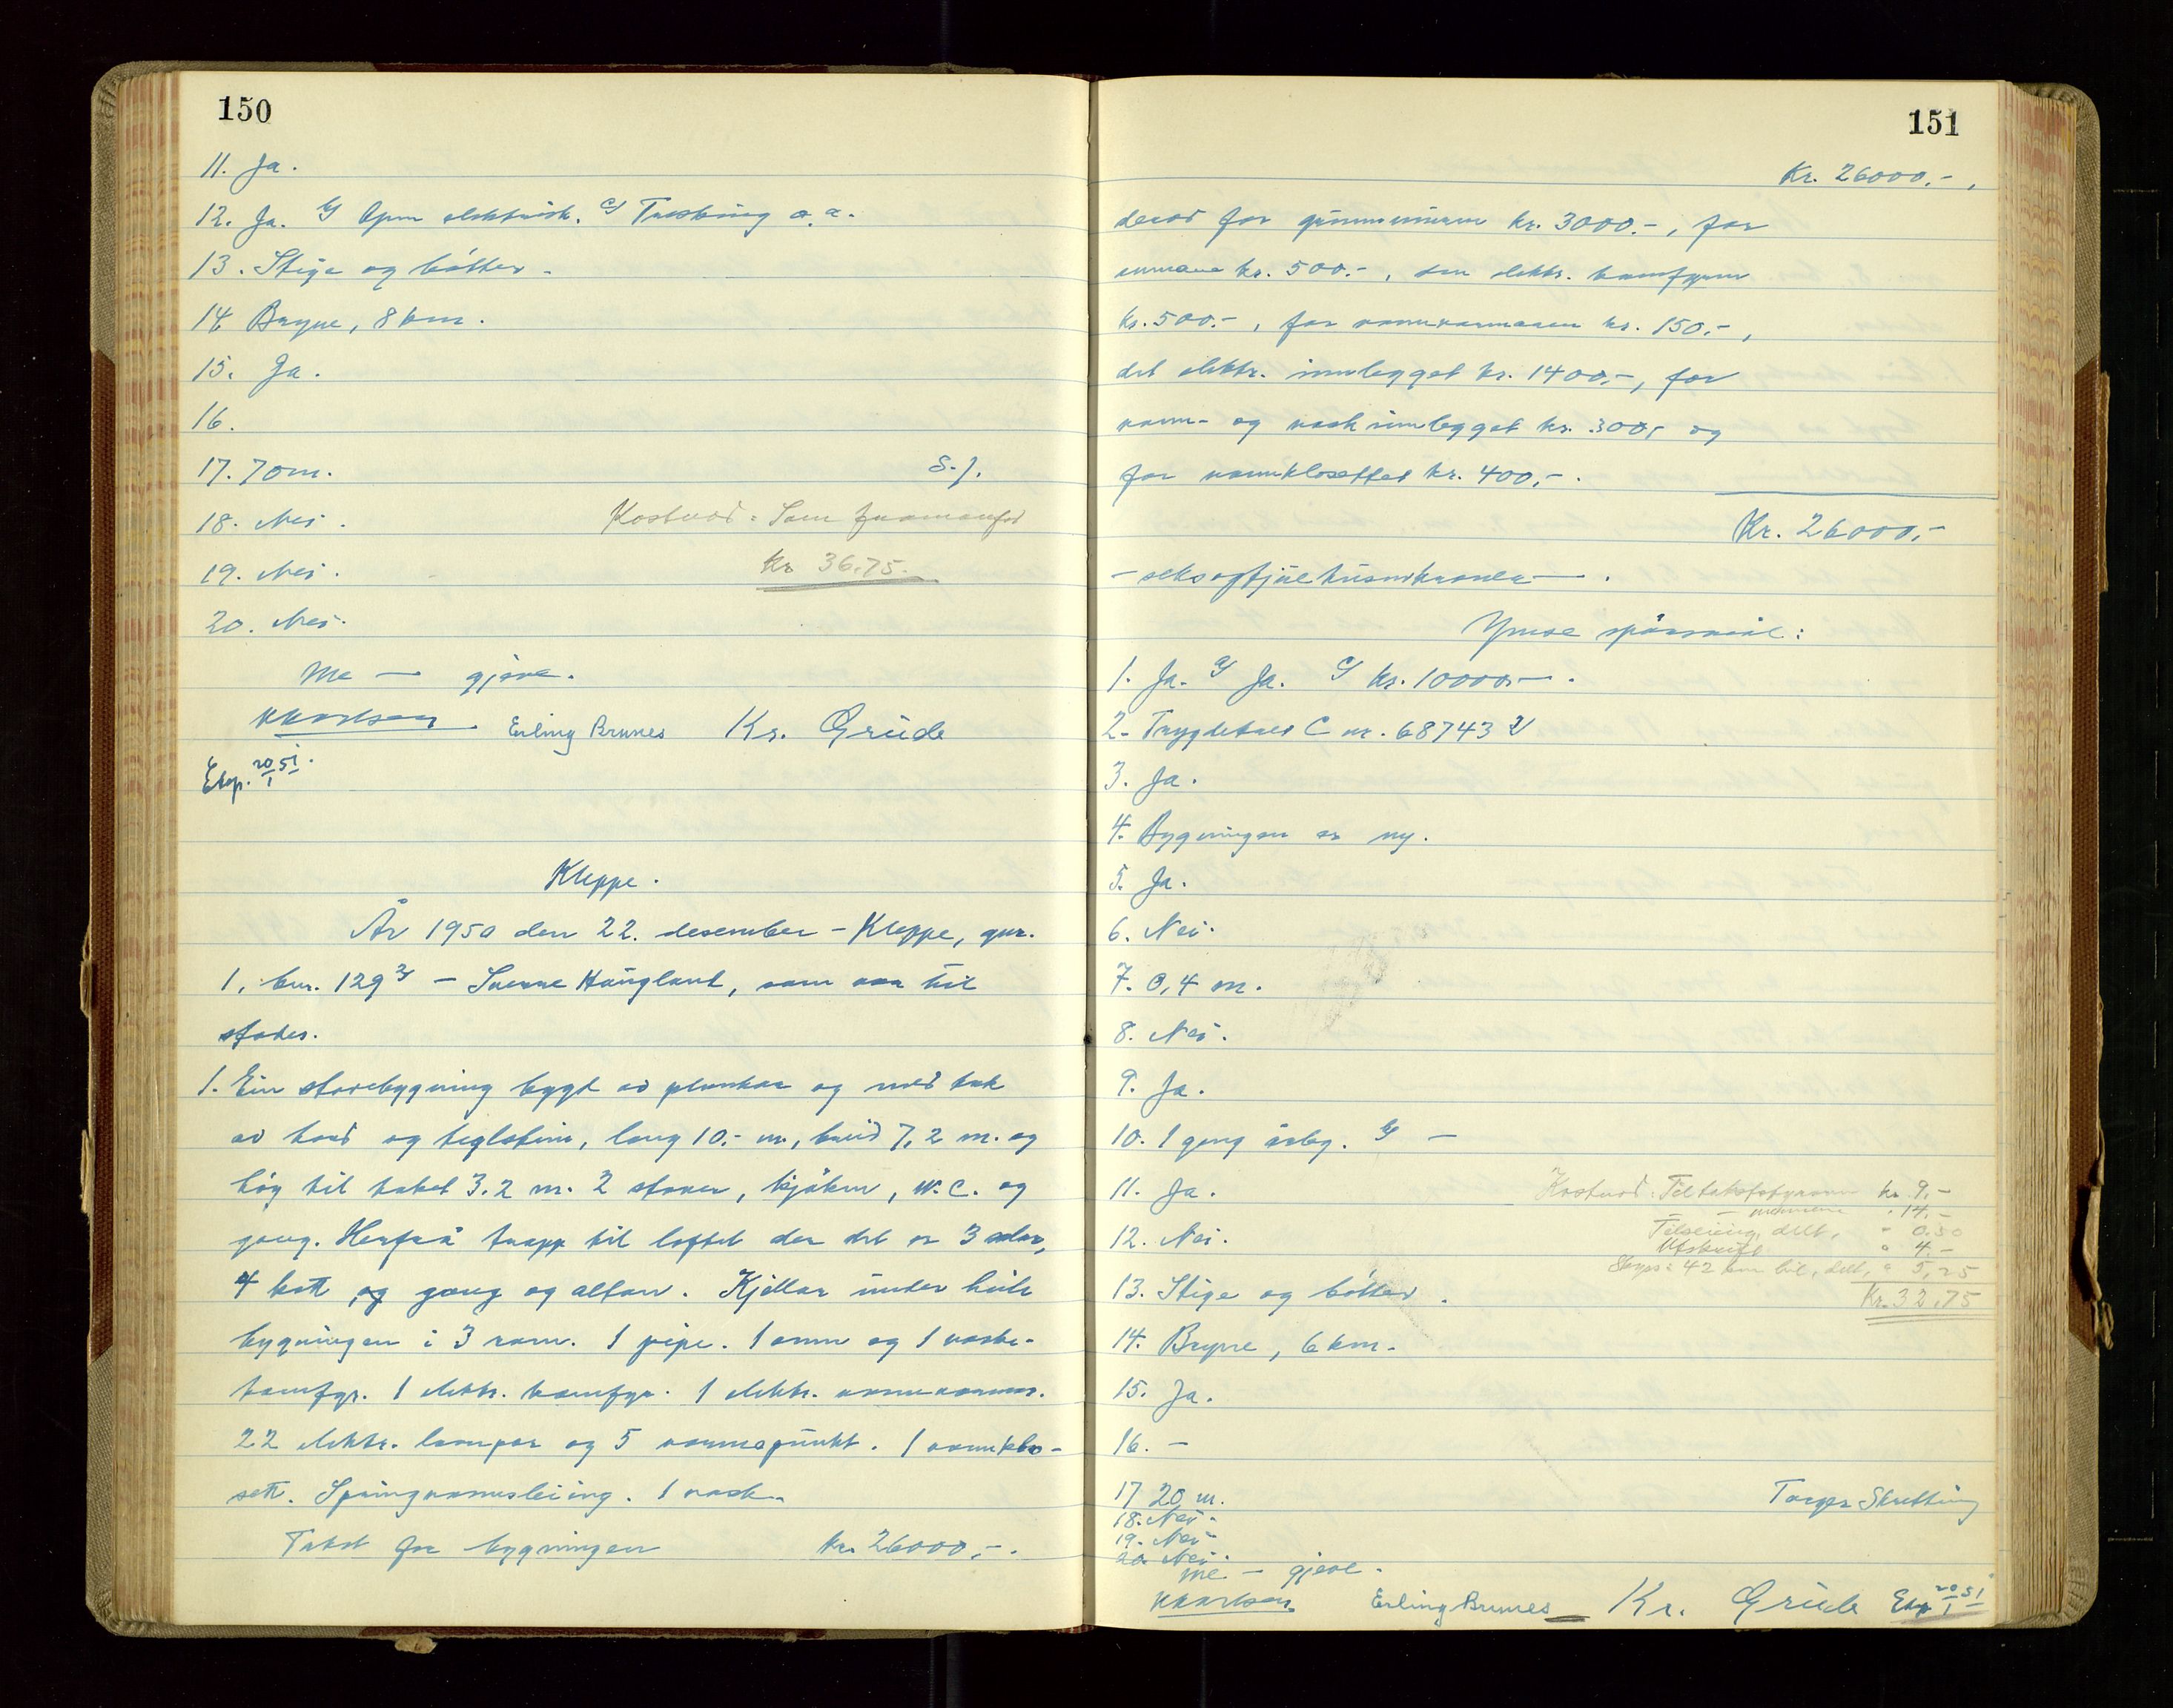 150
11. Ja.
12. Ja. b/ Open elektrisk. c/ Tresking o.a.
13. Stige og bøtter.
14. Bryne, 8 km.
15. Ja.
16.
17. 70 m. S.J.
18. Nei. Kostnad: Som framanfor
19. Nei. Kr 36.75.
20. Nei.
Me — gjeve.
Erling Brunes Kr. Grude
Eksp. 20/1 51.
Kleppe.
År 1950 den 22. desember - Kleppe, gnr.
1, bnr. 129 - Sverre Haugland, som var til
stades.
1. Ein stovebygning bygt av plankar og med tak
av bord og teglstein, lang 10,- m, breid 7,2 m. og
høg til taket 3.2 m. 2 stover, kjøken, W.C. og
gang. Herfrå trapp til loftet der det er 3 rom,
4 kott og gang og altan. Kjellar under heile
bygningen i 3 rom. 1 pipe. 1 omn og 1 vaske-
komfyr. 1 elektr. komfyr. 1 elektr. vannvarmar.
22 elektr. lampar og 5 varmepunkt. 1 vannklo-
sett. Springvannsleiing. 1 vask.
Takst for bygningen kr. 26000,-.
151
Kr. 26000,-,
derav for grunnmuren kr. 3000.-, for
omnane kr. 500.-, den elektr. komfyren
kr. 500.-, for vannvarmaren kr. 150,-,
det elektr. innlegget kr. 1400,-, for
vann- og vaskinnlegget kr. 300,- og
for vannklosettet kr. 400,-.
Kr. 26000,-
- seksogtjuetusenkroner —.
Ymse spørsmål:
1. Ja. b/ Ja. c/ kr. 10000,—.
2. Trygdelaget C nr. 68743
3. Ja.
4. Bygningen er ny.
5. Ja.
6. Nei.
7. 0,4 m.
8. Nei.
9. Ja.
10. 1 gong årleg. b/ —
11. Ja. Kostnad: Til takststyraren kr. 9,-
- mennene " 14,-
12. Nei. Telseiing, delt, " 0.50
Utskrift " 4.-
Skyss 42 km bil, delt, " 5,25
13. Stige og bøtter. Kr. 32.75
14. Bryne, 6 km.
15. Ja.
16. -
17 20 m. Torger Skretting
18. Nei.
19. Nei
20. Nei.
Me - gjeve.
Erling Brunes Kr. Grude Eksp 20/1 51